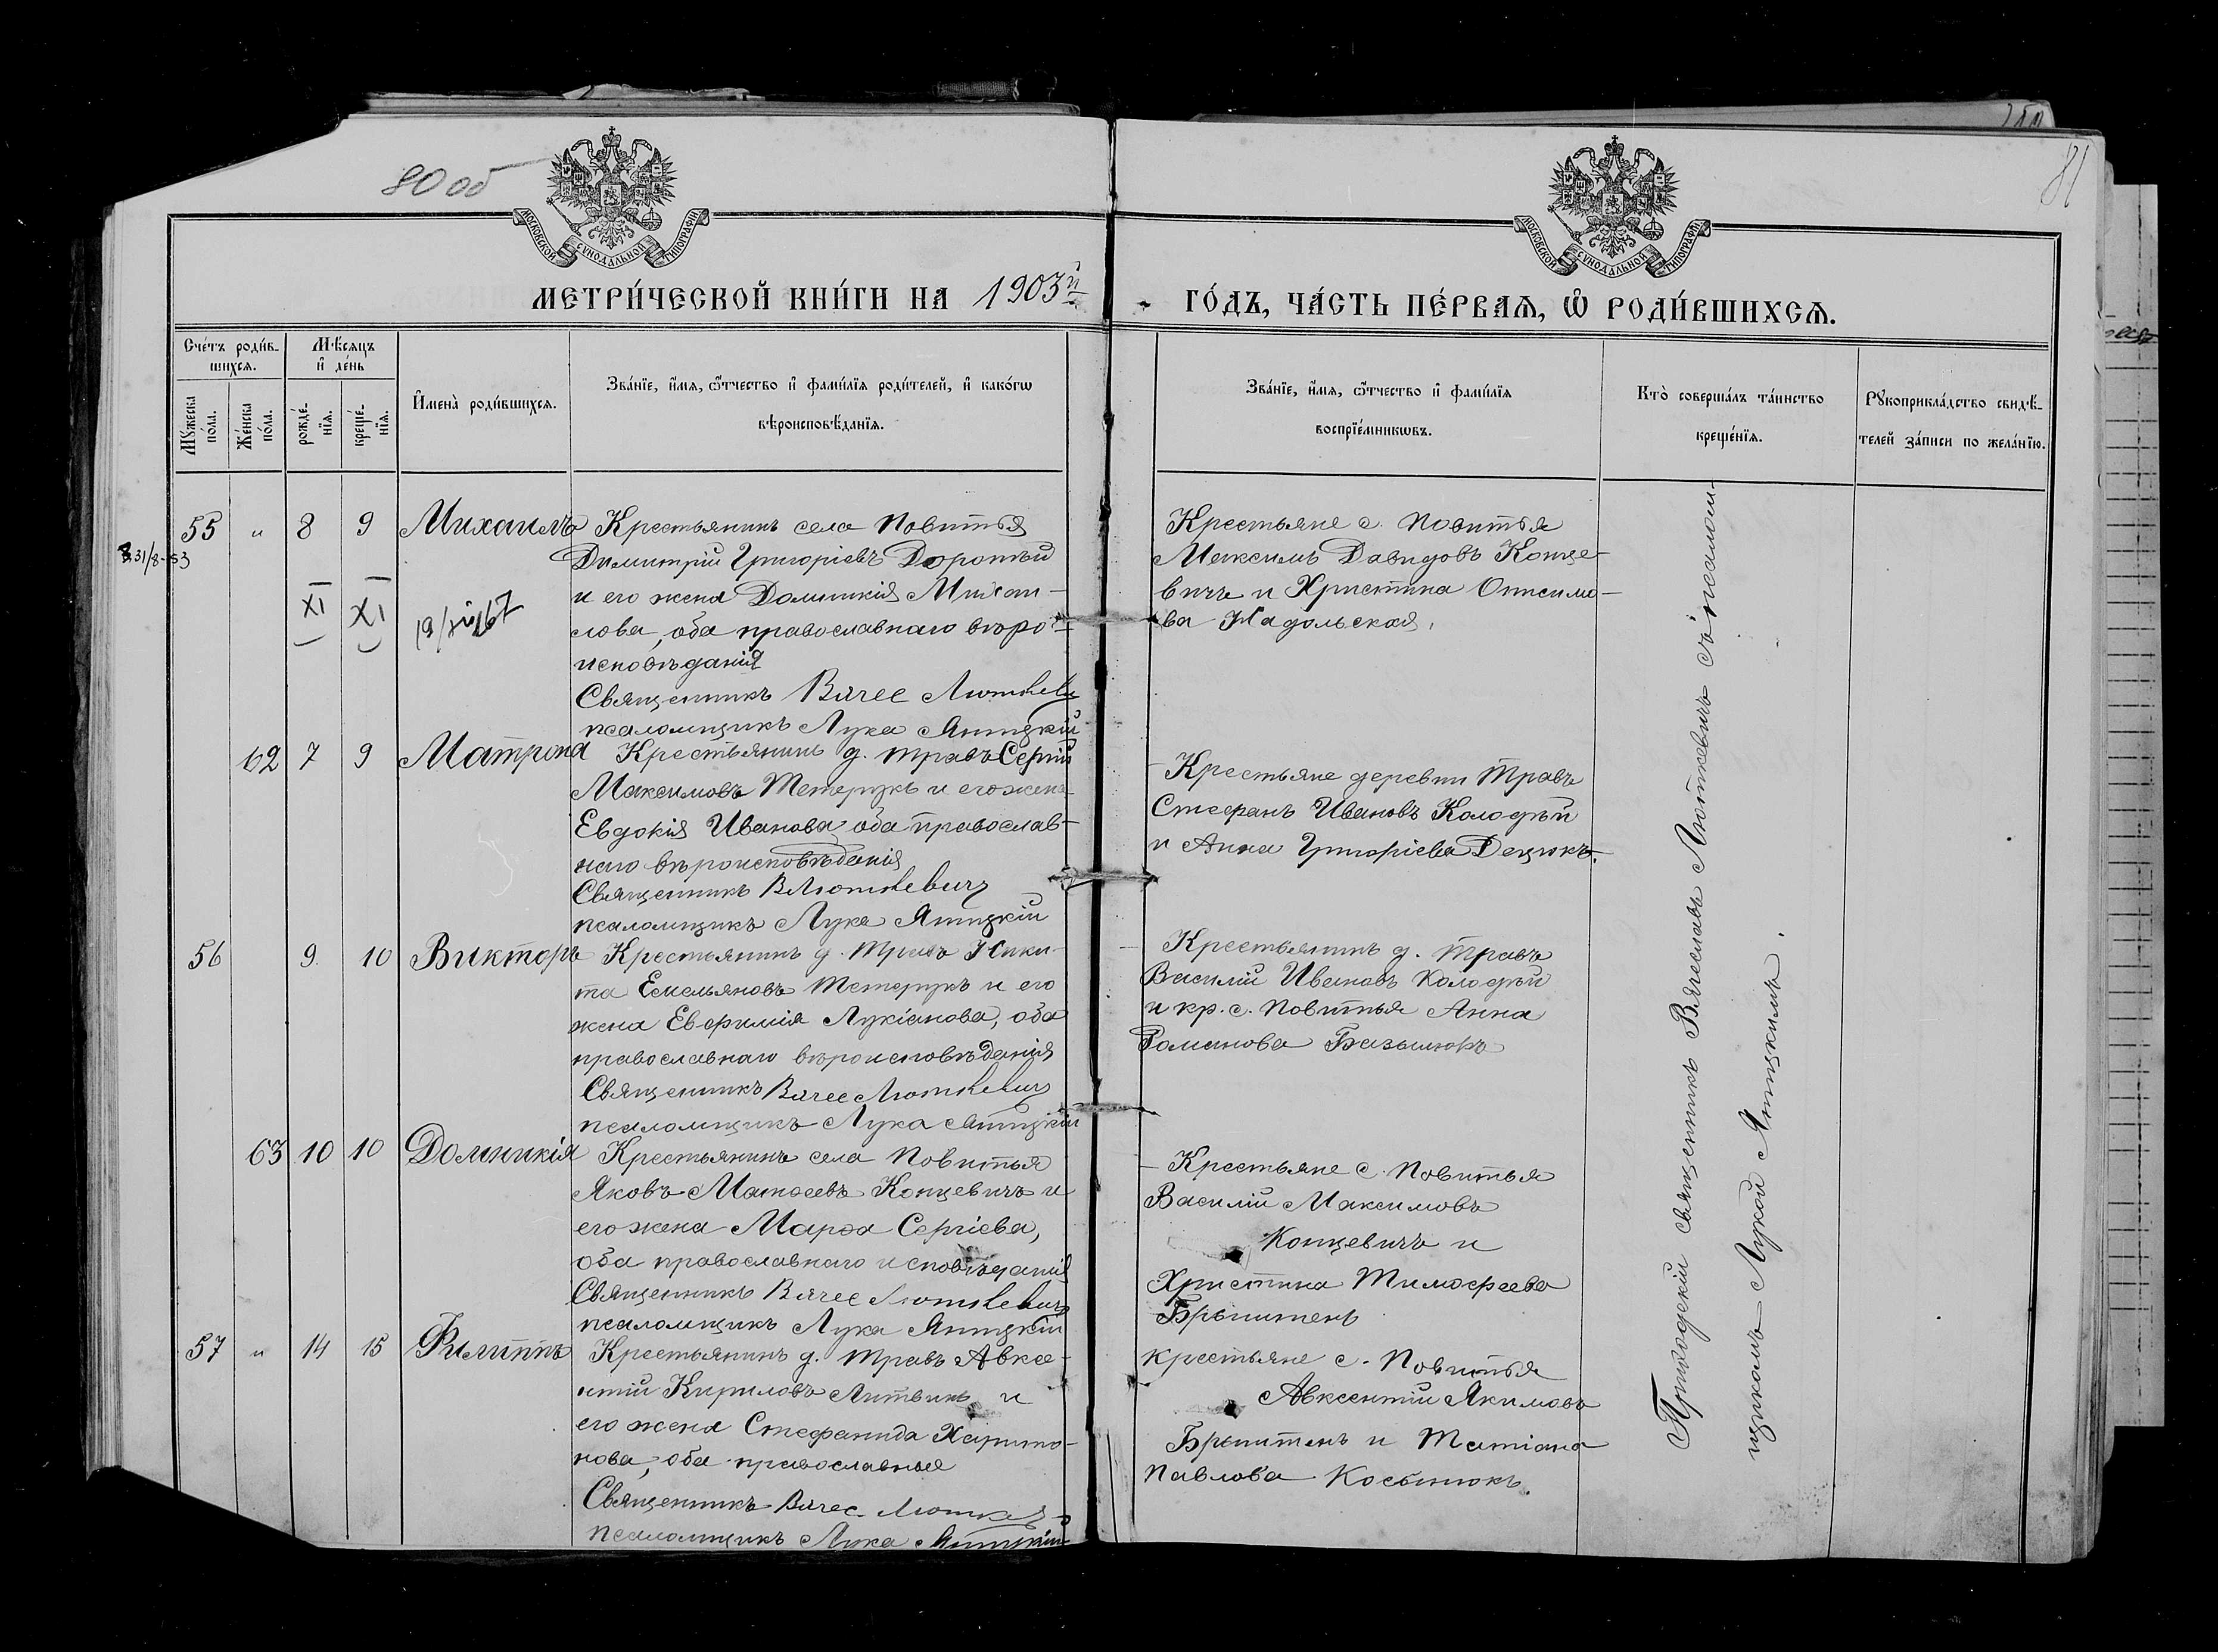 80 об
81
МОСКОВСКОЙ СУНОДАЛЬНОЙ ТИПОГРАФІИ
МОСКОВСКОЙ СУНОДАЛЬНОЙ ТИПОГРАФІИ
МЕТРИ́ЧЕСКОЙ КНИ́ГИ НА 1903й
ГО́ДЪ, ЧА́СТЬ ПЕ́РВАЯ, Ѡ РОДИ́ВШИХСЯ.
Сче́тъ роди́в-
шихся.
Мѣ́сяцъ
и де́нь
Му́жеска
по́ла.
Же́нска
по́ла.
рожде́-
нїя.
креще́-
нїя.
Имена̀ роди́вшихся.
Зва́нїе, и́мя, ѻ́тчество и фами́лїя роди́телей, и како́гѡ
вѣроисповѣ́данїя.
Зва́нїе, и́мя, ѻ́тчество и фами́лїя
воспрїе́мникѡвъ.
Кто̀ соверша́лъ та́инство
креще́нїя.
Рукоприкла́дство свидѣ́-
телей за́писи по жела́нїю.
55 " 8 9 Михаилъ Крестьянинъ села Повитья
31/8-53
Димитрій Григоріевъ Доротѣй
XI XI
и его жена Домникія Михаи-
лова, оба православнаго вѣро-
исповѣданія
Священникъ Вячес Люткевич
псаломщикъ Лука Яницкій
Крестьяне с. Повитья
Максимъ Давидовъ Конце-
вичъ и Христина Онисимо-
ва Надольская,
62 7 9 Матрона Крестьянинъ д. Травъ Сергій
Максимовъ Тетерукъ и его жена
Евдокія Иванова, оба православ-
наго вѣроисповѣданія
Священникъ ВЛюткевич
псаломщикъ Лука Яницкій
Крестьяне деревни Травъ
Стефанъ Ивановъ Колодѣй
и Анна Григоріева Децюкъ.
56 9 10 Викторъ Крестьянинъ д. Травъ Ники-
та Емельяновъ Тетерукъ и его
жена Евфимія Лукіанова, оба
православнаго вѣроисповѣданія
Священникъ Вячес Люткевич
псаломщикъ Лука Яницкій
Крестьянинъ д. Травъ
Василій Ивановъ Колодѣй
и кр. с. Повитья Анна
Романова Базылюкъ
63 10 10 Домникія Крестьянинъ села Повитья
Яковъ Матѳеевъ Концевичъ и
его жена Марѳа Сергіева,
оба православнаго исповѣданія
Священникъ Вячес Люткевич
псаломщикъ Лука Яницкій
Крестьяне с. Повитья
Василій Максимовъ
Концевичъ и
Христина Тимофеева
Брынтенъ
57 " 14 15 Филиппъ Крестьянинъ д. Травъ Авксе-
нтій Кириловъ Литвинъ и
его жена Стефанида Харито-
нова, оба православныя
Священникъ Вячес. Люткев
псаломщикъ Лука Яницкій
Крестьяне с. Повитья
Авксентій Якимовъ
Брынтенъ и Татіана
Павлова Косьтюкъ.
Приходскій священникъ Вячеславъ Люткевичъ съ псалом-
щикомъ Лукой Яницкимъ.